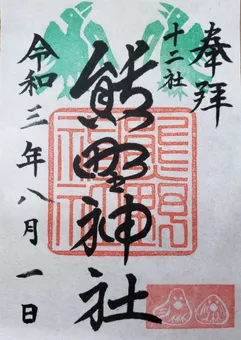 奉拝
十二社
熊野神社
令和三年八月一日